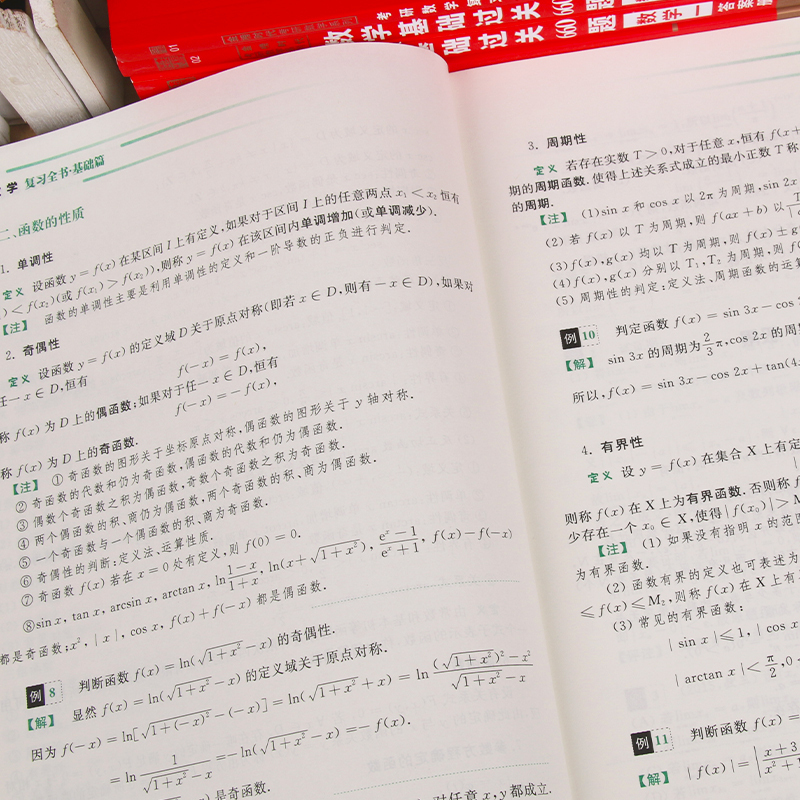 考研数学
数学基础过关660题
数学一
基础过关660题
答案册
数学 复习全书·基础篇
二、函数的性质
1. 单调性
定义 设函数 y = f(x) 在某区间 I 上有定义,如果对于区间 I 上的任意两点 x₁ < x₂ 恒有
) < f(x₂)(或 f(x₁) > f(x₂)),则称 y = f(x) 在该区间内单调增加(或单调减少).
【注】 函数的单调性主要是利用单调性的定义和一阶导数的正负进行判定.
2. 奇偶性
定义 设函数 y = f(x) 的定义域 D 关于原点对称(即若 x ∈ D,则有 −x ∈ D),如果对
任一 x ∈ D,恒有
f(−x) = f(x),
称 f(x) 为 D 上的偶函数;如果对于任一 x ∈ D,恒有
f(−x) = −f(x),
称 f(x) 为 D 上的奇函数.
【注】 ① 奇函数的图形关于坐标原点对称,偶函数的图形关于 y 轴对称.
② 奇函数的代数和仍为奇函数,偶函数的代数和仍为偶函数.
③ 偶数个奇函数之积为偶函数,奇数个奇函数之积为奇函数.
④ 两个偶函数的积、商仍为偶函数,两个奇函数的积、商为偶函数.
⑤ 一个奇函数与一个偶函数的积、商为奇函数.
⑥ 奇偶性的判断:定义法、运算性质.
⑦ 奇函数 f(x) 若在 x = 0 处有定义,则 f(0) = 0.
⑧ sin x, tan x, arcsin x, arctan x, ln (1−x)/(1+x), ln(x+√(1+x²)), (eˣ−1)/(eˣ+1), f(x)−f(−x)
都是奇函数;x², |x|, cos x, f(x)+f(−x) 都是偶函数.
例 8 判断函数 f(x) = ln(√(1+x²) − x) 的奇偶性.
【解】 显然 f(x) = ln(√(1+x²) − x) 的定义域关于原点对称.
因为 f(−x) = ln[√(1+(−x)²) − (−x)] = ln(√(1+x²) + x) = ln ((√(1+x²))² − x²)/(√(1+x²) − x)
= ln 1/(√(1+x²) − x) = −ln(√(1+x²) − x) = −f(x).
是奇函数.
对任意 x, y 都成立.
3. 周期性
定义 若存在实数 T > 0,对于任意 x,恒有 f(x+
期的周期函数. 使得上述关系式成立的最小正数 T 称
的周期.
【注】 (1) sin x 和 cos x 以 2π 为周期, sin 2x
(2) 若 f(x) 以 T 为周期,则 f(ax + b) 以
(3) f(x), g(x) 均以 T 为周期,则 f(x) ± g
(4) f(x), g(x) 分别以 T₁, T₂ 为周期,则 f(
(5) 周期性的判定:定义法、周期函数的运算
例 10 判定函数 f(x) = sin 3x − cos
【解】 sin 3x 的周期为 2/3 π, cos 2x 的周
所以, f(x) = sin 3x − cos 2x + tan(4
4. 有界性
定义 设 y = f(x) 在集合 X 上有定
则称 f(x) 在 X 上为有界函数. 否则称 f
少存在一个 x₀ ∈ X,使得 | f(x₀) | > M
【注】 (1) 如果没有指明 x 的范围
为有界函数.
(2) 函数有界的定义也可表述为
≤ f(x) ≤ M₂,则称 f(x) 在 X 上有
(3) 常见的有界函数:
| sin x | ≤ 1, | cos x
| arctan x | < π/2, 0
例 11 判断函数 f(x) =
【解】 | f(x) | = | (x + 3)/(x² +